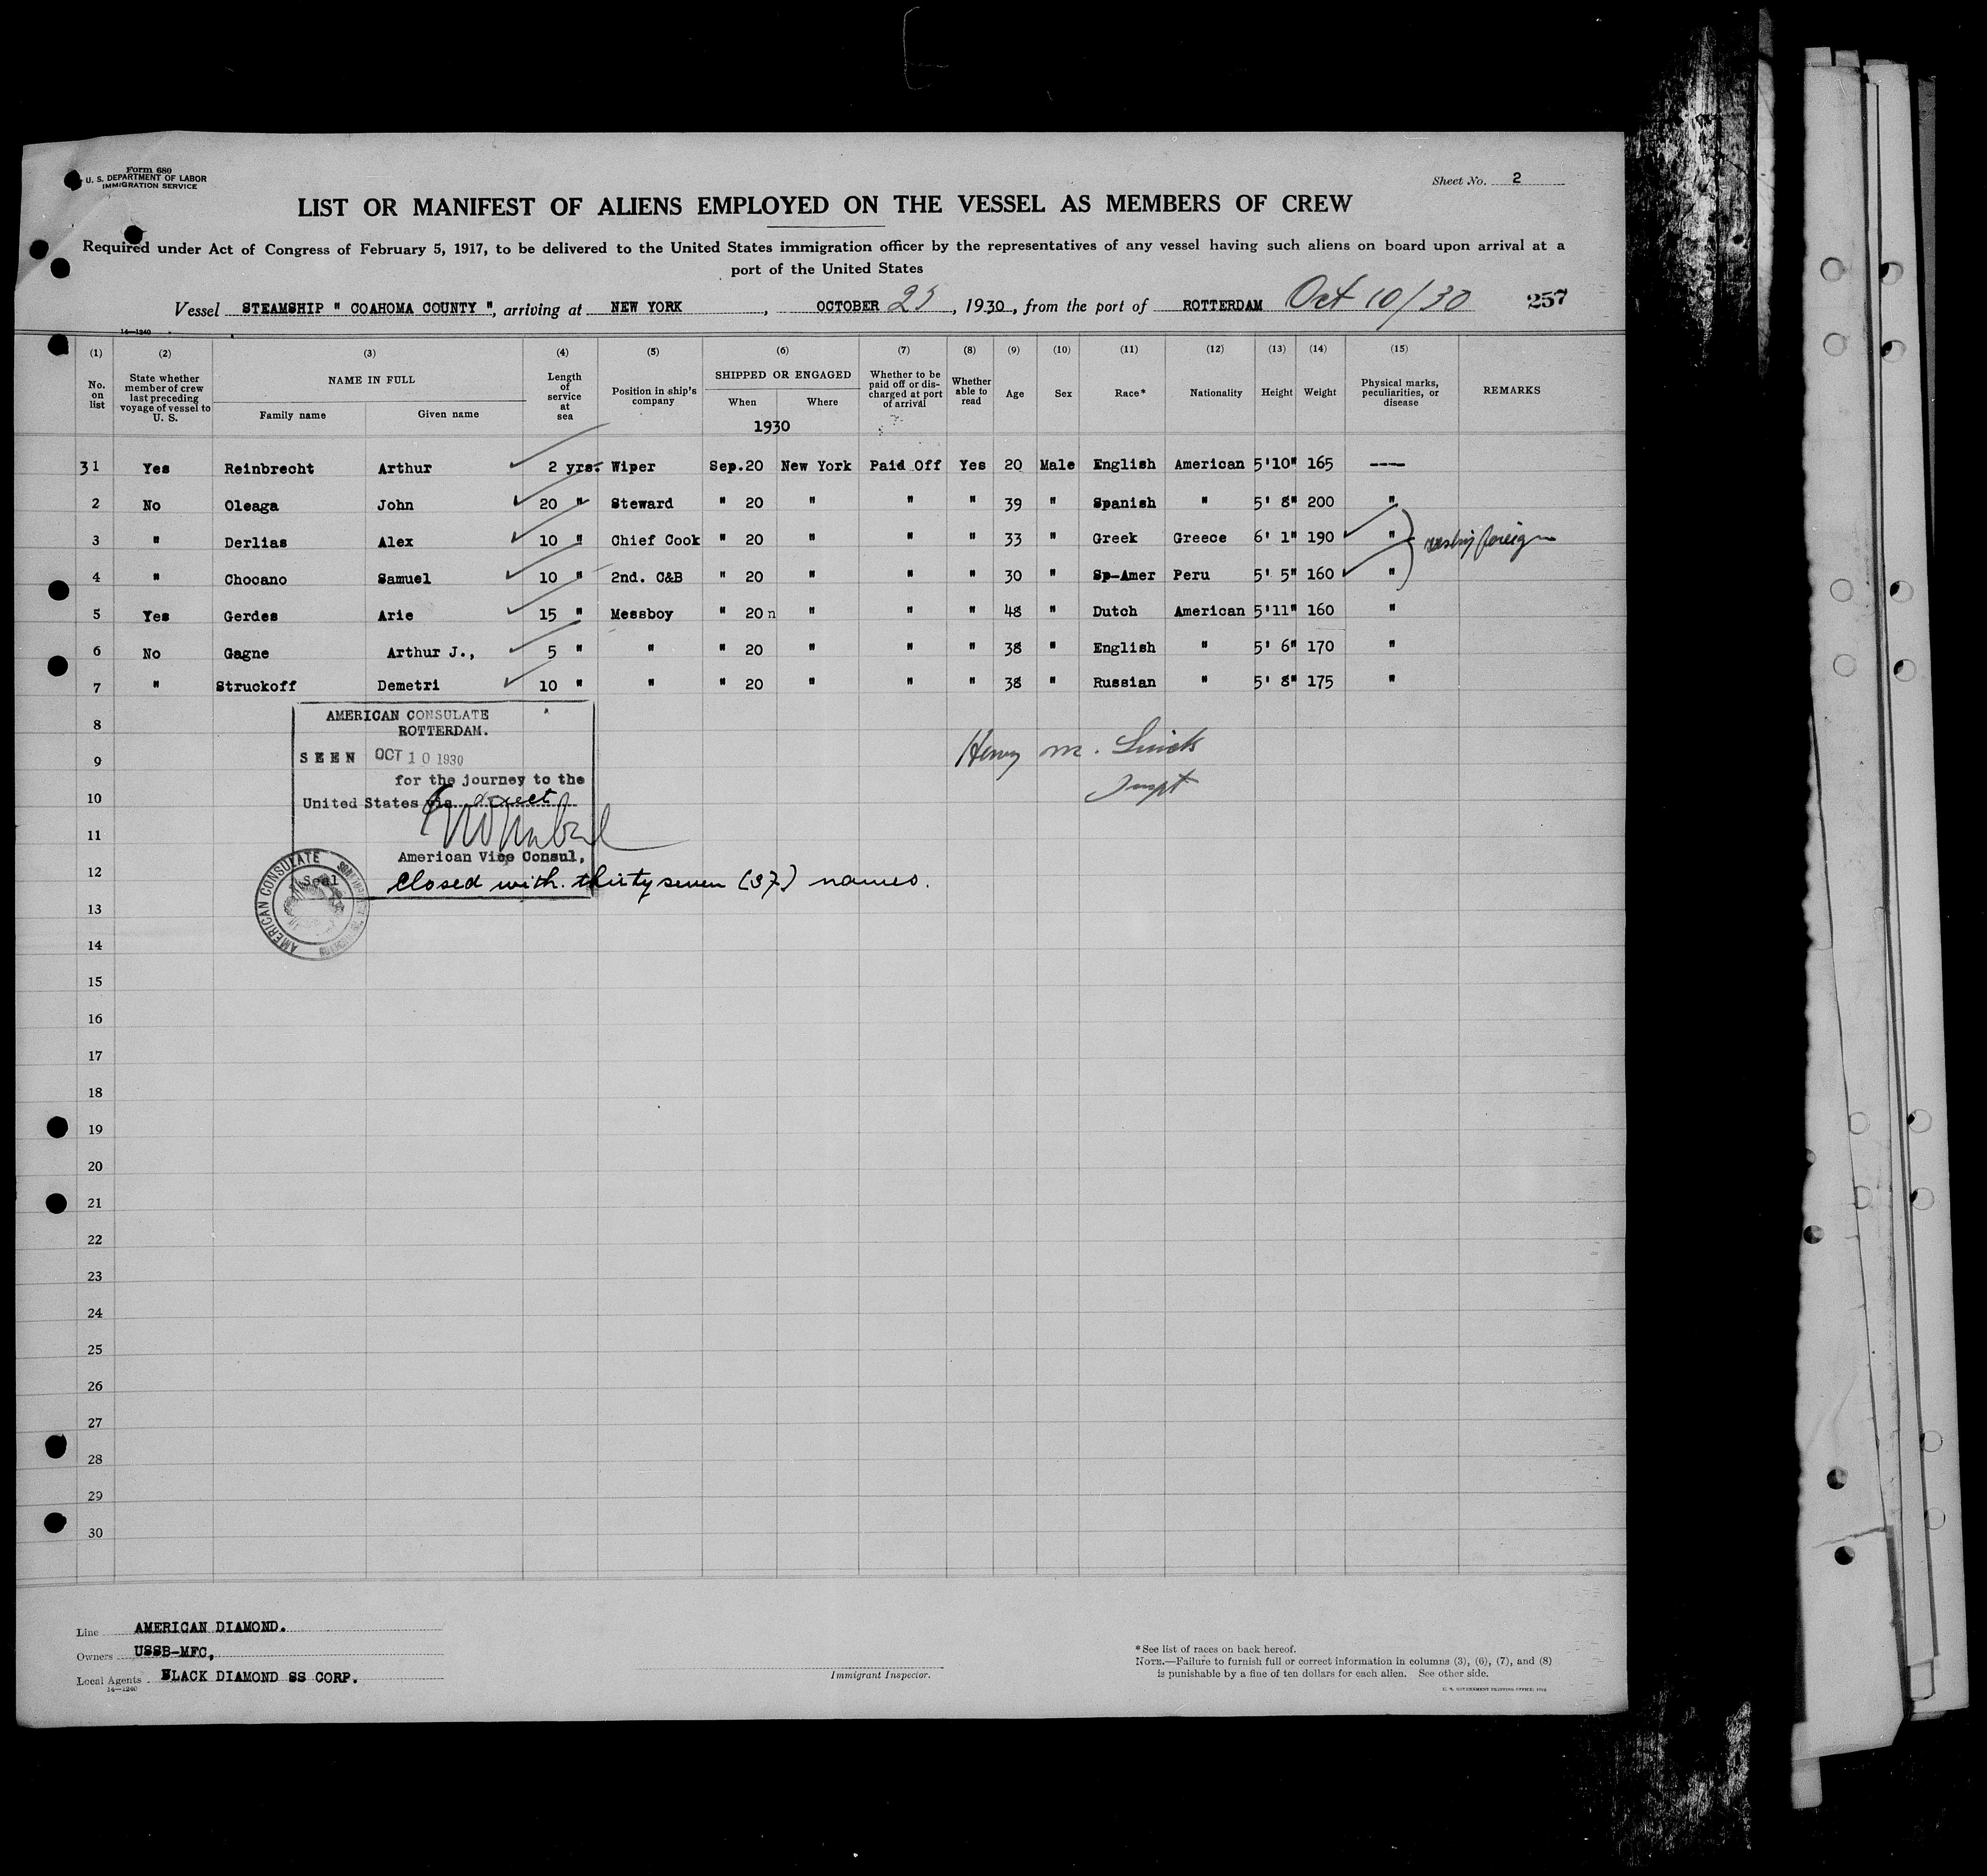 Form 680
U. S. DEPARTMENT OF LABOR
IMMIGRATION SERVICE
Sheet No. 2
LIST OR MANIFEST OF ALIENS EMPLOYED ON THE VESSEL AS MEMBERS OF CREW
Required under Act of Congress of February 5, 1917, to be delivered to the United States immigration officer by the representatives of any vessel having such aliens on board upon arrival at a
port of the United States
Vessel STEAMSHIP " COAHOMA COUNTY ", arriving at NEW YORK, OCTOBER, 1930, from the port of ROTTERDAM Oct 10/30 257
14—1240
(1) (2) (3) (4) (5) (6) (7) (8) (9) (10) (11) (12) (13) (14) (15)
No. on list State whether member of crew last preceding voyage of vessel to U. S. NAME IN FULL Family name Given name Length of service at sea Position in ship's company SHIPPED OR ENGAGED When Where Whether to be paid off or discharged at port of arrival Whether able to read Age Sex Race* Nationality Height Weight Physical marks, peculiarities, or disease REMARKS
1930
31 Yes Reinbrecht Arthur 2 yrs. Wiper Sep.20 New York Paid Off Yes 20 Male English American 5'10" 165 ----
2 No Oleaga John 20 " Steward " 20 " " " 39 " Spanish " 5' 8" 200 "
3 " Derlias Alex 10 " Chief Cook " 20 " " " 33 " Greek Greece 6' 1" 190 " foreign
4 " Chocano Samuel 10 " 2nd. C&B " 20 " " " 30 " Sp-Amer Peru 5' 5" 160 "
5 Yes Gerdes Arie 15 " Messboy " 20n " " " 48 " Dutch American 5'11" 160 "
6 No Gagne Arthur J., 5 " " " 20 " " " 38 " English " 5' 6" 170 "
7 " Struckoff Demetri 10 " " " 20 " " " 38 " Russian " 5' 8" 175 "
8
AMERICAN CONSULATE
ROTTERDAM.
9
SEEN OCT 10 1930
Henry M.
for the journey to the
10
United States via direct
11
American Vice Consul,
12
Seal
Closed with thirty seven (37) names.
AMERICAN CONSULATE
13
14
15
16
17
18
19
20
21
22
23
24
25
26
27
28
29
30
Line AMERICAN DIAMOND.
Owners USSB-MFC,
Local Agents BLACK DIAMOND SS CORP.
14—1240
Immigrant Inspector.
*See list of races on back hereof.
NOTE.—Failure to furnish full or correct information in columns (3), (6), (7), and (8)
is punishable by a fine of ten dollars for each alien. See other side.